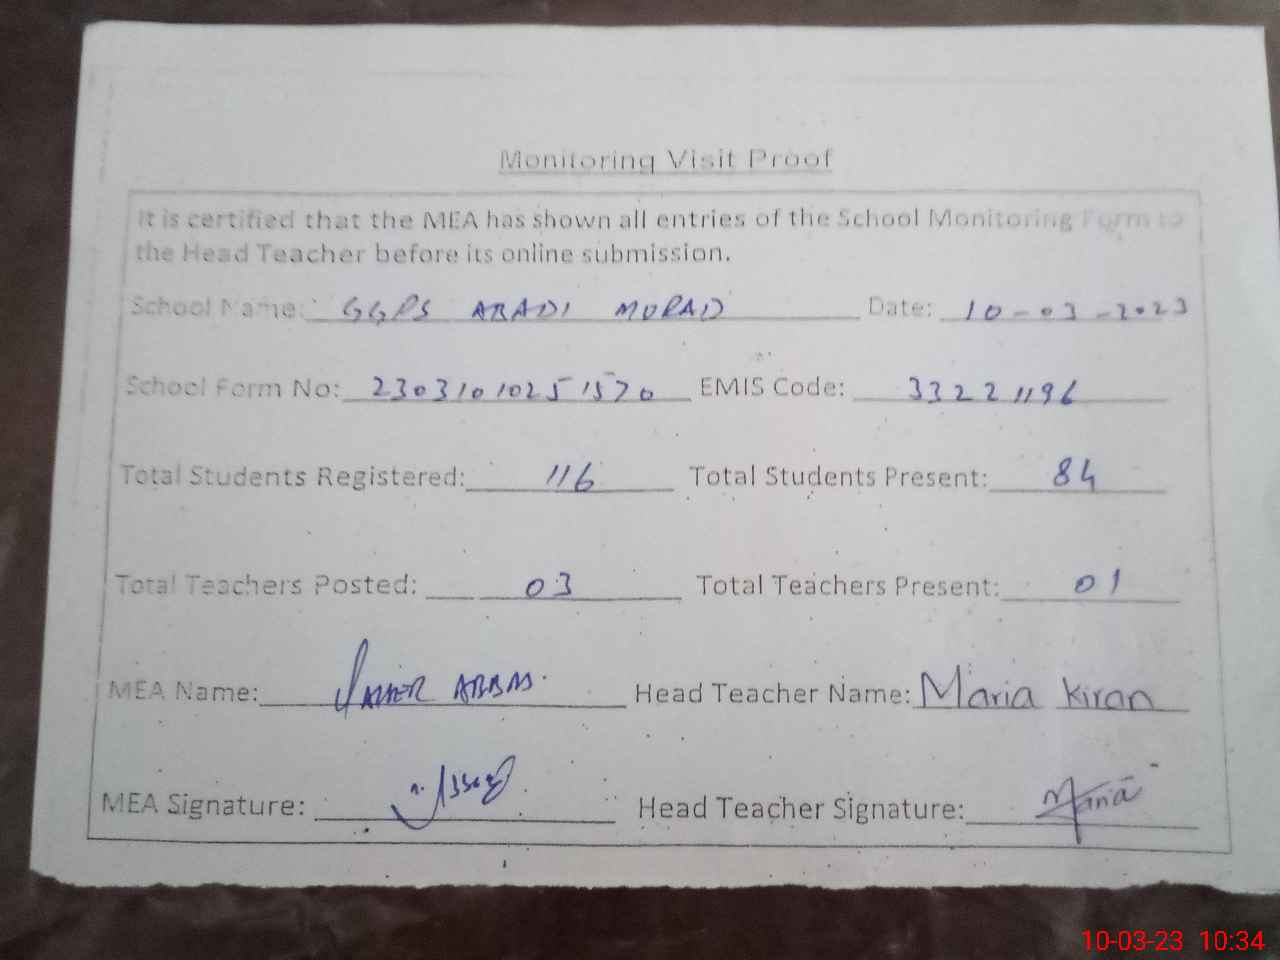 Monitoring Visit Proof
It is certified that the MEA has shown all entries of the School Monitoring Form to
the Head Teacher before its online submission.
School Name: GGPS ABADI MURAD Date: 10-03-2023
School Form No: 2303101025 1570 EMIS Code: 33221196
Total Students Registered: 116 Total Students Present: 84
Total Teachers Posted: 03 Total Teachers Present: 01
MEA Name: ABBAS Head Teacher Name: Maria Kiran
MEA Signature: Head Teacher Signature: Maria
10-03-23 10:34